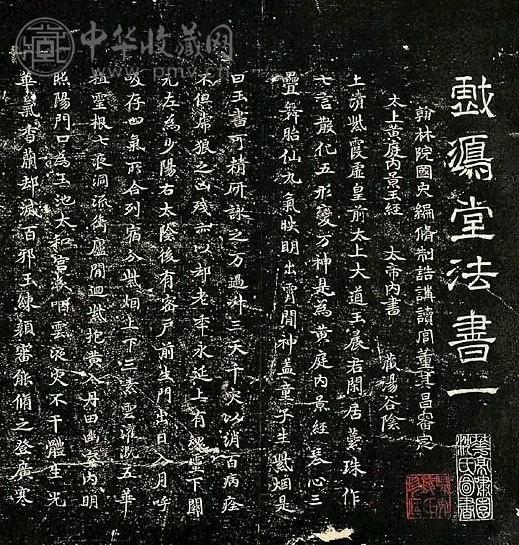 中华收藏网
戲鴻堂法書一
翰林院國史編脩制誥講讀官董其昌審定
太上黃庭內景玉經 太帝內書 藏暘谷陰
上清紫霞虛皇前太上大道玉晨君閑居蕊珠作
七言散化五形變万神是為黃庭內景經琴心三
疊舞胎仙九氣映明出霄間神蓋童子生紫烟是
曰玉書可精研詠之万過昇三天千灾以消百病痊
不憚虎狼之凶殘亦以却老年永延上有魂靈下關
元左為少陽右太陰後有密戶前生門出日入月呼
吸存四氣所合列宿分紫烟上下三素雲灌溉五華
植靈根七液洞流衝廬間迴紫抱黃入丹田幽室內明
照陽門口為玉池太和官漱咽靈液灾不干體生光
華氣香蘭却滅百邪玉鍊顏審能脩之登廣寒